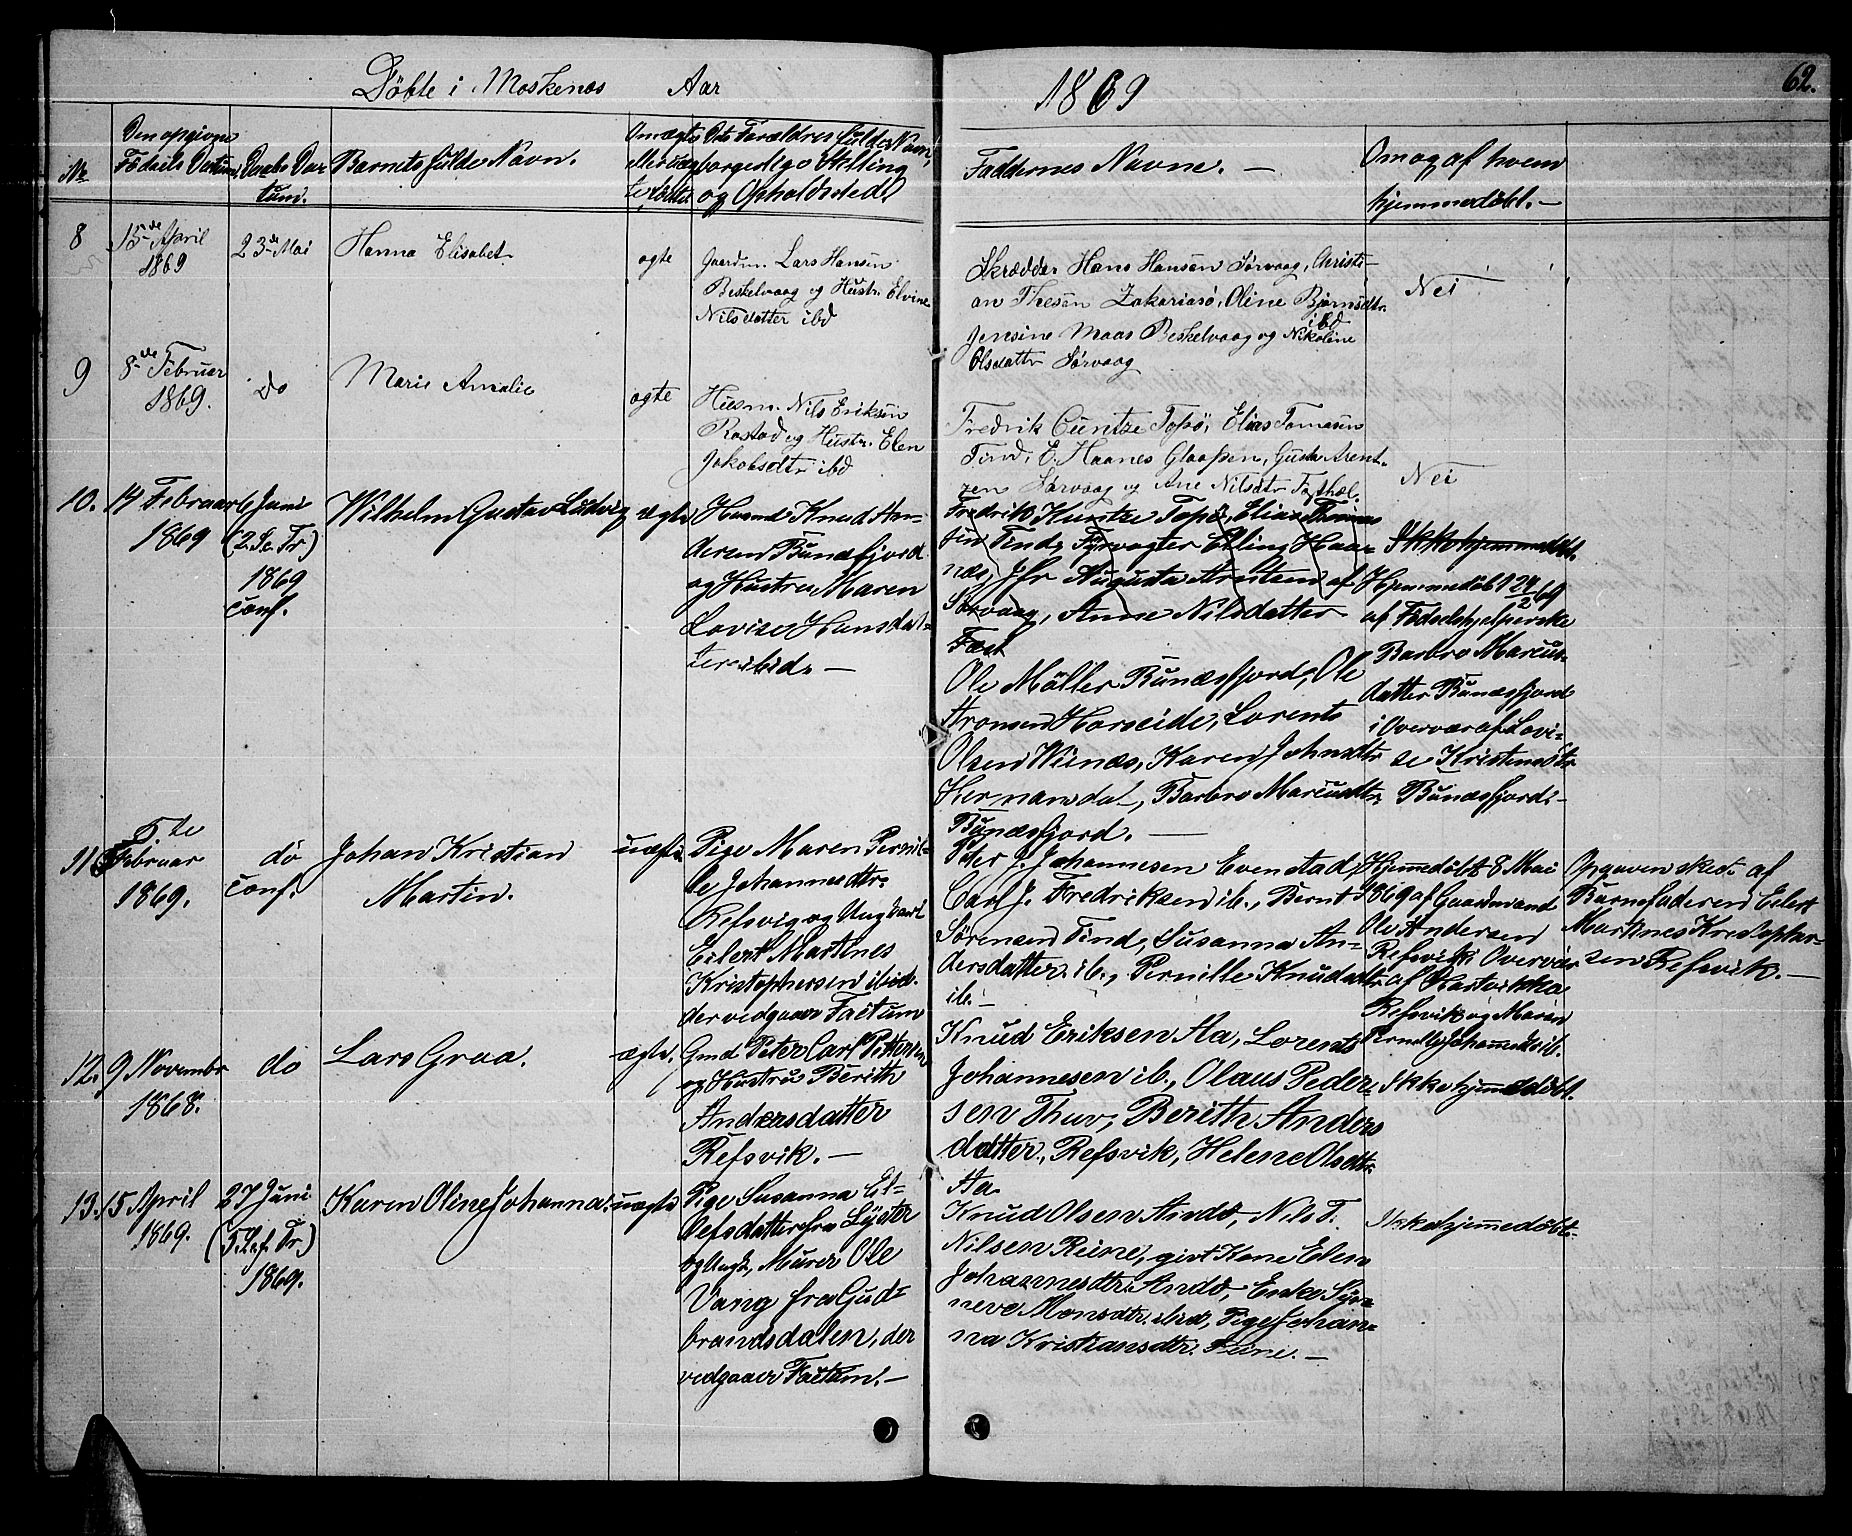 Döbte i Moskenæs Aar 1869 62.
No Den opgivne Födsels Datum. Daabs Datum. Barnets fulde Navn. Om ægte eller uægte födte De Forældres fulde Navn, borgerlige Stilling og Opholdsted
Faddernes Navne. — Om og af hvem hjemmedöbt. —
8 15de April 1869 23de Mai Hanna Elisabet ægte
Gaardm. Lars Hansen
Beskelvaag og Hustr. Elvine
Nilsdatter ibd
Skrædder Hans Hansen Sörvaag, Christi-
an Thesen Zakariasö, Oline Bjornsdtr.
ibd
Jensine Maas Beskelvaag og Nikoline
Olsdattr Sörvaag
Nei
9 8de Februar 1869. do Marie Amalie ægte
Husm. Nils Eriksen
Rostad og Hustr. Elen
Jakobsdtr ibd
Fredrik Cuntze Topö, Elias Tomasen
Tind, E. Haanes Glaapen, Gusta Arent-
zen Sörvaag og Ane Nilsdtr
Nei
10. 14 Februar 1869 6 Juni (2 S. e Tr) 1869 conf. Wilhelm Gustav Ludvig ægte
Huusmd Knud An-
dersen Bunæsfjord
og Hustru Maren
Lovise Hansdat-
ter ibid. —
Fredrik Kuntze Topö, Elias
sen Tind, Fyrvogter Elling Haa-
næs, Jfr Augusta Arntsen af
Sörvaag, Anne Nilsdatter
Fæst
Ole Möller Bunæsfjord, Ole
Aronsen Horseide, Lorents
Olsen Winæs, Karen Johnsdtr
Hermansdal, Barbro Marcusdtr,
Bunæsfjord. —
Ikke hjemmedöbt.
Hjemmedöbt 24/2 69
af Födselshjelperske
Barbro Marcus-
datter Bunæsfjord
i Overvær af Lovi-
se Kristensdtr
Bunæsfjord. —
11 5te Februar 1869. do conf. Johan Kristian Martin. uægte
Pige Maren Pernil-
le Johannesdtr.
Refsvig og Ungkarl
Eilert Martines
Kristophersen ibid.
der vedgaaer Factum
Peter J. Johannesen Evenstad,
Carl J. Fredriksen ib., Bernt
Sörensen Tind, Susanna An-
dersdatter ib., Pernille Knudsdtr
ib. —
Hjemmedöbt 8 Mai
1869 af Gaardmand
Ole Andersen
Refsvik i Overvær
af Hartvikka
Refsvik og Maren
Pernille Johannesdtr ib.
Opgaven skede af
Barnefaderen Eilert
Martines Kristopher-
sen Refsvik. —
12. 9 Novembr 1868. do Lars Graa. ægte,
Gmd Peter Carl Pettersen
og Hustru Berith
Andersdatter
Refsvik. —
Knud Eriksen Aa, Lorents
Johannesen ib., Olaus Peder-
sen Thuv, Berith Anders
datter, Refsvik, Helene Olsdtr.
Aa
Ikke hjemmedöbt.
13. 15 April 1869. 27 Juni (5 S. ef. Tr.) 1869. Karen Oline Johanna. uægte
Pige Susanna El-
lefsdatter fra Lyster
og Ungk., Murer Ole
Vang fra Gud-
brandsdalen, der
vedgaaer Factum. —
Knud Olsen Andö, Nils T.
Nilsen Reine, givt Kone Elen
Johannesdtr. Andö, Enke Syn-
neve Monsdtr. ibid, Pige Johan-
na Kristiansdtr. Reine. —
Ikke hjemmedöbt.